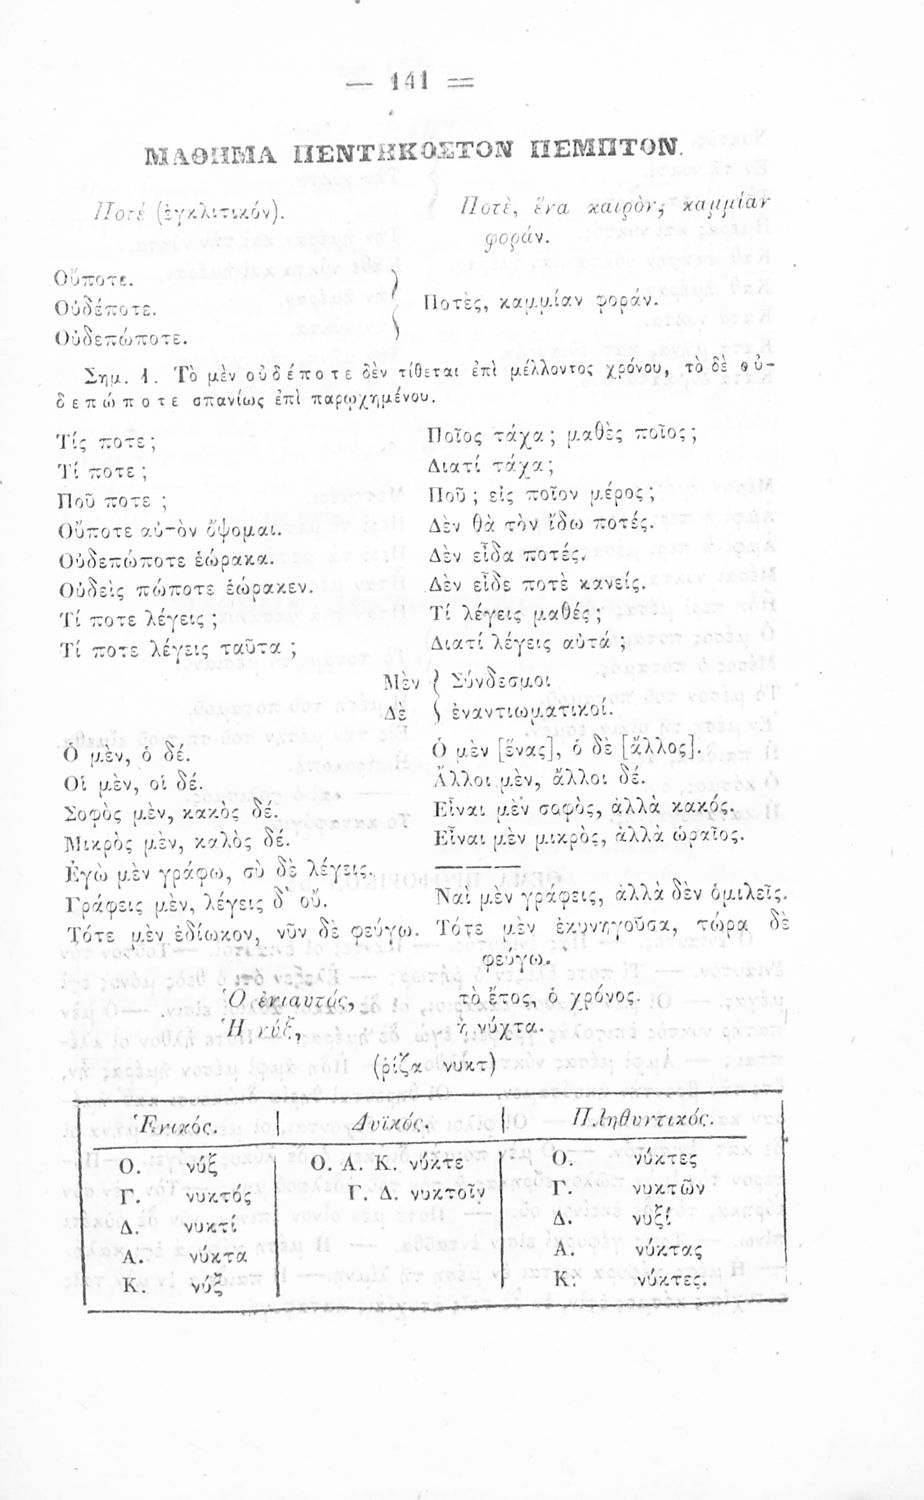 — 141 —
ΜΑΘΗΜΑ ΠΕΝΤΗΚΟΣΤΟΝ ΠΕΜΠΤΟΝ.
Ποτέ (ἐγκλιτικόν). Ποτὲ, ἕνα καιρὸν, καμμίαν
φοράν.
Οὔποτε.
Οὐδέποτε. Ποτὲς, καμμίαν φοράν.
Οὐδεπώποτε.
Σημ. 1. Τὸ μὲν οὐδέποτε δὲν τίθεται ἐπὶ μέλλοντος χρόνου, τὸ δὲ οὐ-
δεπώποτε σπανίως ἐπὶ παρῳχημένου.
Τίς ποτε; Ποῖος τάχα; μαθὲς ποῖος;
Τί ποτε; Διατί τάχα;
Ποῦ ποτε; Ποῦ; εἰς ποῖον μέρος;
Οὔποτε αὐτὸν ὄψομαι. Δὲν θὰ τὸν ἴδω ποτές.
Οὐδεπώποτε ἑώρακα. Δὲν εἶδα ποτές.
Οὐδεὶς πώποτε ἑώρακεν. Δὲν εἶδε ποτὲ κανείς.
Τί ποτε λέγεις; Τί λέγεις μαθές;
Τί ποτε λέγεις ταῦτα; Διατί λέγεις αὐτά;
Μὲν { Σύνδεσμοι
Δὲ ἐναντιωματικοί.
Ὁ μὲν, ὁ δέ. Ὁ μὲν [ἕνας], ὁ δὲ [ἄλλος].
Οἱ μὲν, οἱ δέ. Ἄλλοι μὲν, ἄλλοι δέ.
Σοφὸς μὲν, κακὸς δέ. Εἶναι μὲν σοφὸς, ἀλλὰ κακός.
Μικρὸς μὲν, καλὸς δέ. Εἶναι μὲν μικρὸς, ἀλλὰ ὡραῖος.
Ἐγὼ μὲν γράφω, σὺ δὲ λέγεις. ———
Γράφεις μὲν, λέγεις δ' οὔ. Ναὶ μὲν γράφεις, ἀλλὰ δὲν ὁμιλεῖς.
Τότε μὲν ἐδίωκον, νῦν δὲ φεύγω. Τότε μὲν ἐκυνηγοῦσα, τώρα δὲ
φεύγω.
Ὁ ἐνιαυτός, τὸ ἔτος, ὁ χρόνος.
Ἡ νύξ, ἡ νύχτα.
(ῥίζα νυκτ)
Ἑνικός. Δυϊκός. Πληθυντικός.
Ο. νύξ Ο. Α. Κ. νύκτε Ο. νύκτες
Γ. νυκτός Γ. Δ. νυκτοῖν Γ. νυκτῶν
Δ. νυκτί Δ. νυξί
Α. νύκτα Α. νύκτας
Κ. νύξ Κ. νύκτες.